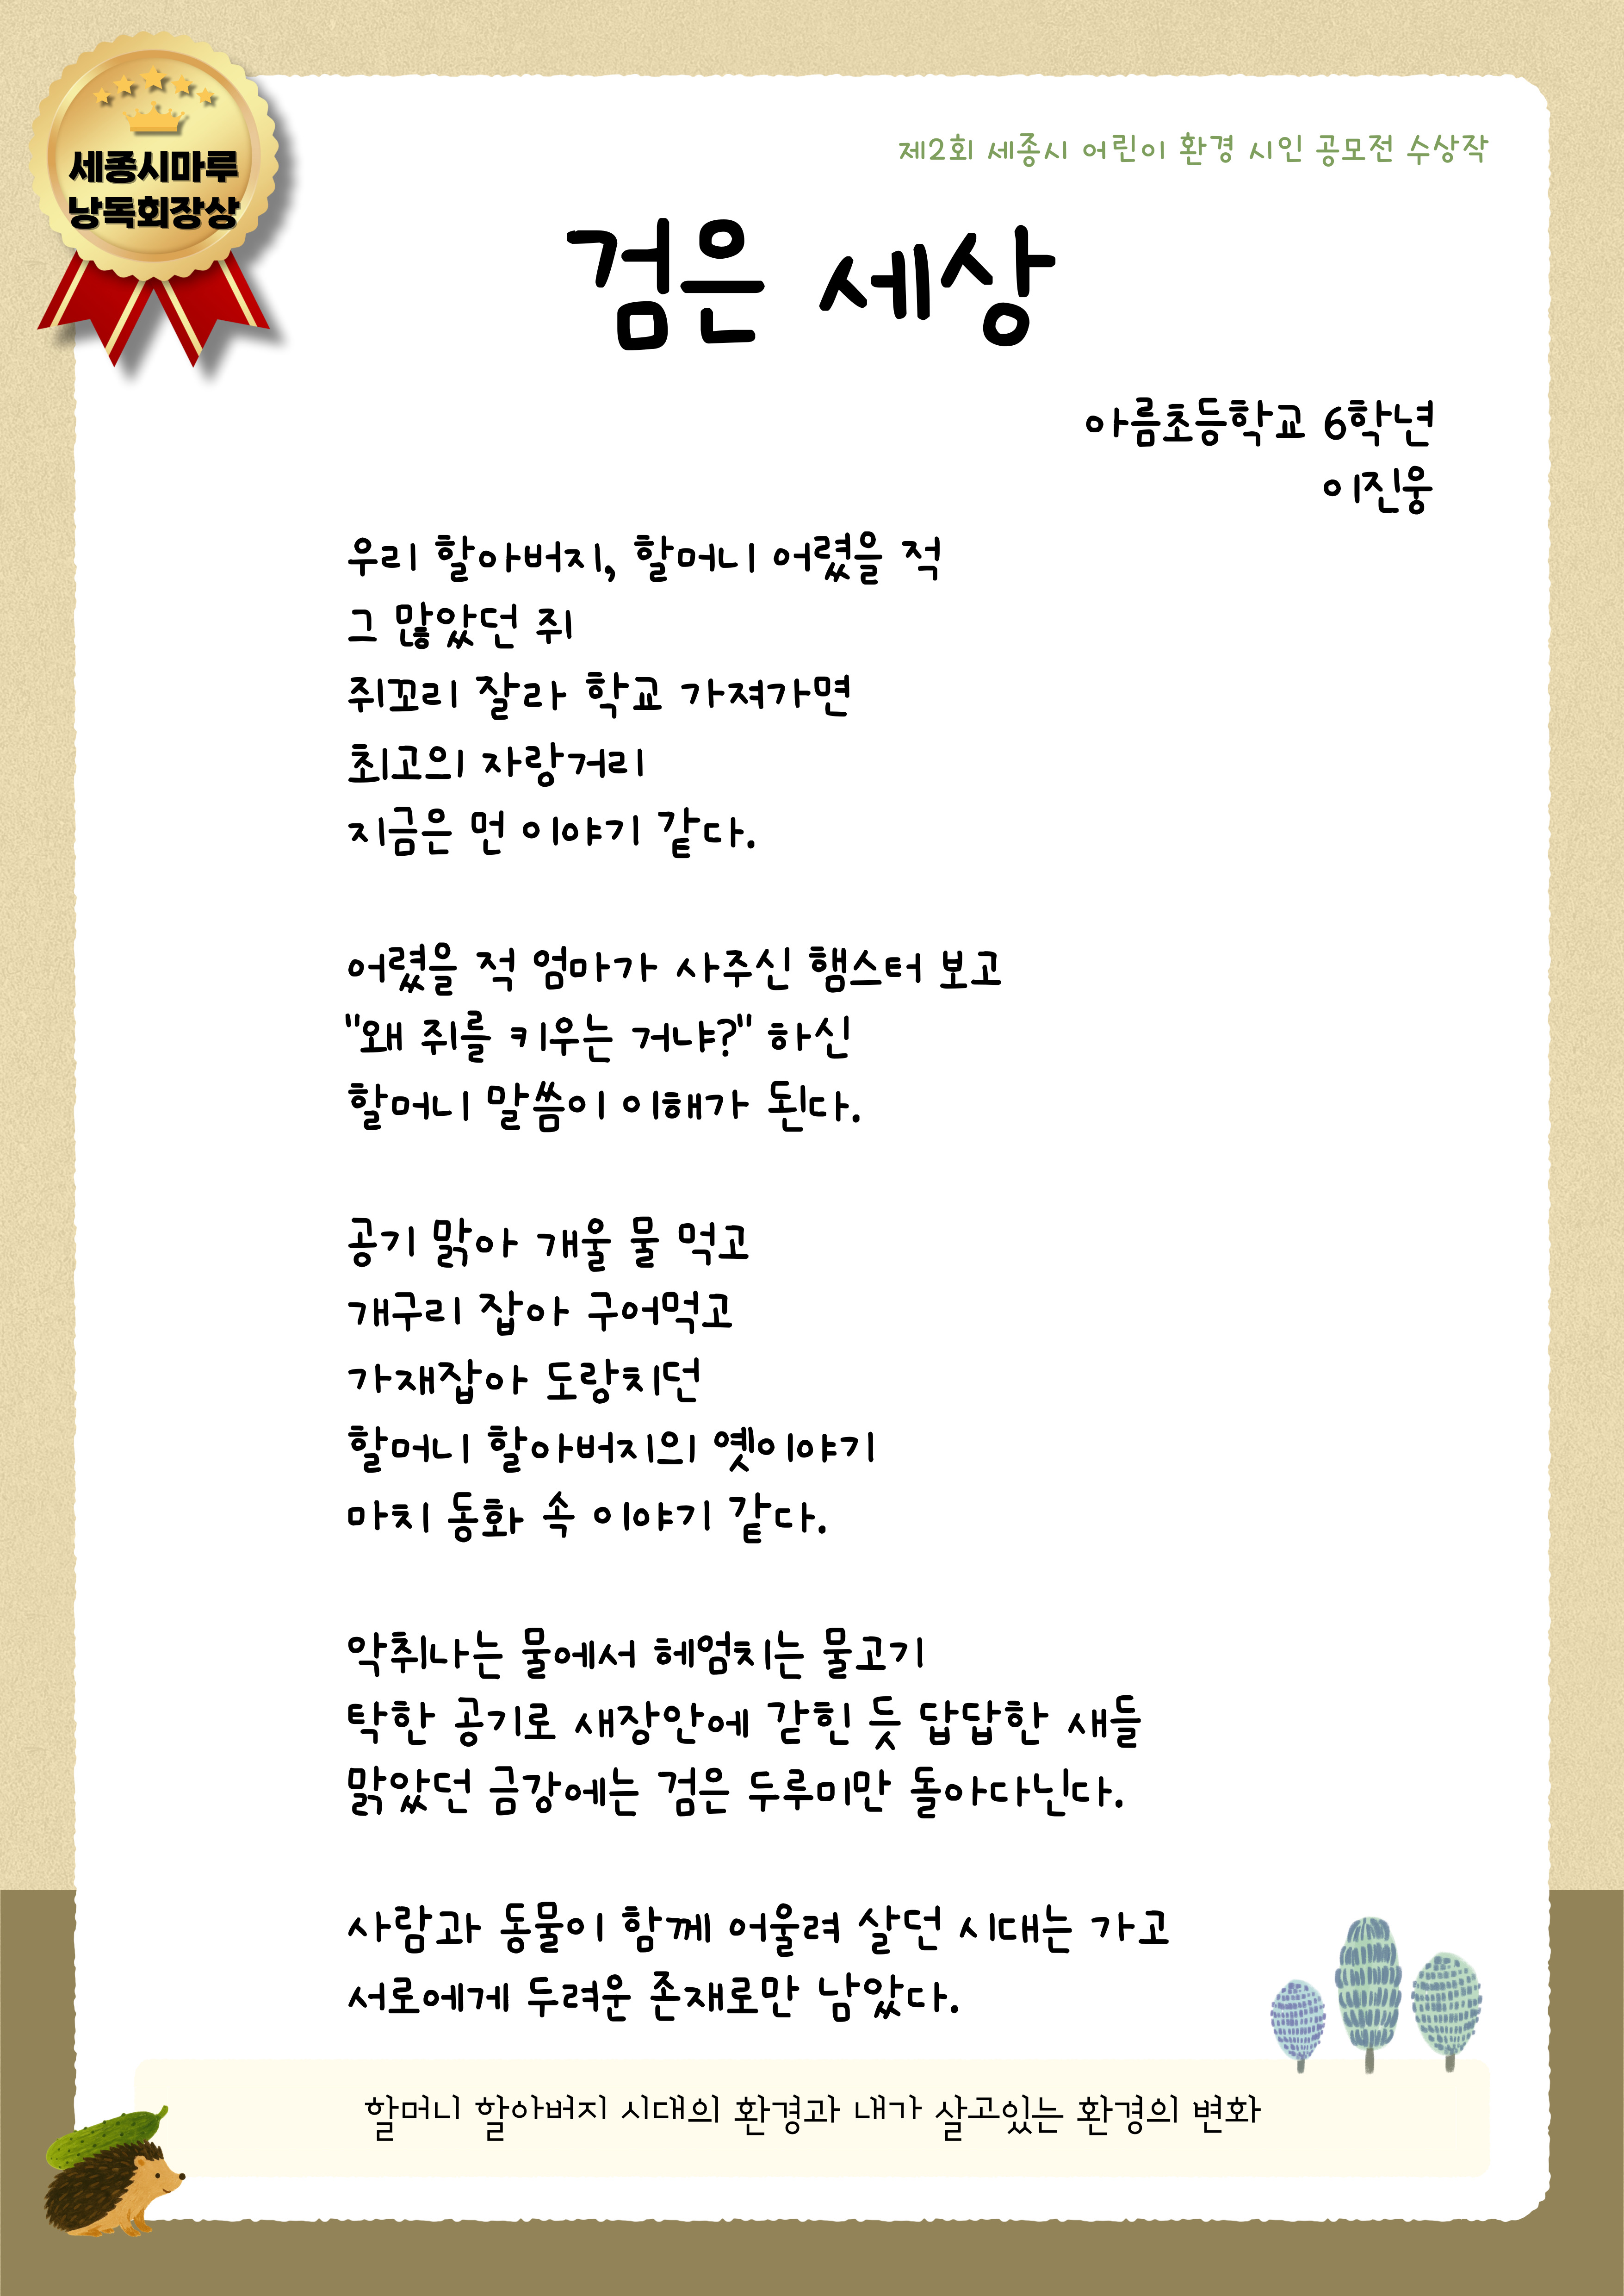 세종시마루
낭독회장상
제2회 세종시 어린이 환경 시인 공모전 수상작
검은 세상
아름초등학교 6학년
이진웅
우리 할아버지, 할머니 어렸을 적
그 많았던 쥐
쥐꼬리 잘라 학교 가져가면
최고의 자랑거리
지금은 먼 이야기 같다.
어렸을 적 엄마가 사주신 햄스터 보고
"왜 쥐를 키우는 거냐?" 하신
할머니 말씀이 이해가 된다.
공기 맑아 개울 물 먹고
개구리 잡아 구어먹고
가재잡아 도랑치던
할머니 할아버지의 옛이야기
마치 동화 속 이야기 같다.
악취나는 물에서 헤엄치는 물고기
탁한 공기로 새장안에 갇힌 듯 답답한 새들
맑았던 금강에는 검은 두루미만 돌아다닌다.
사람과 동물이 함께 어울려 살던 시대는 가고
서로에게 두려운 존재로만 남았다.
할머니 할아버지 시대의 환경과 내가 살고있는 환경의 변화